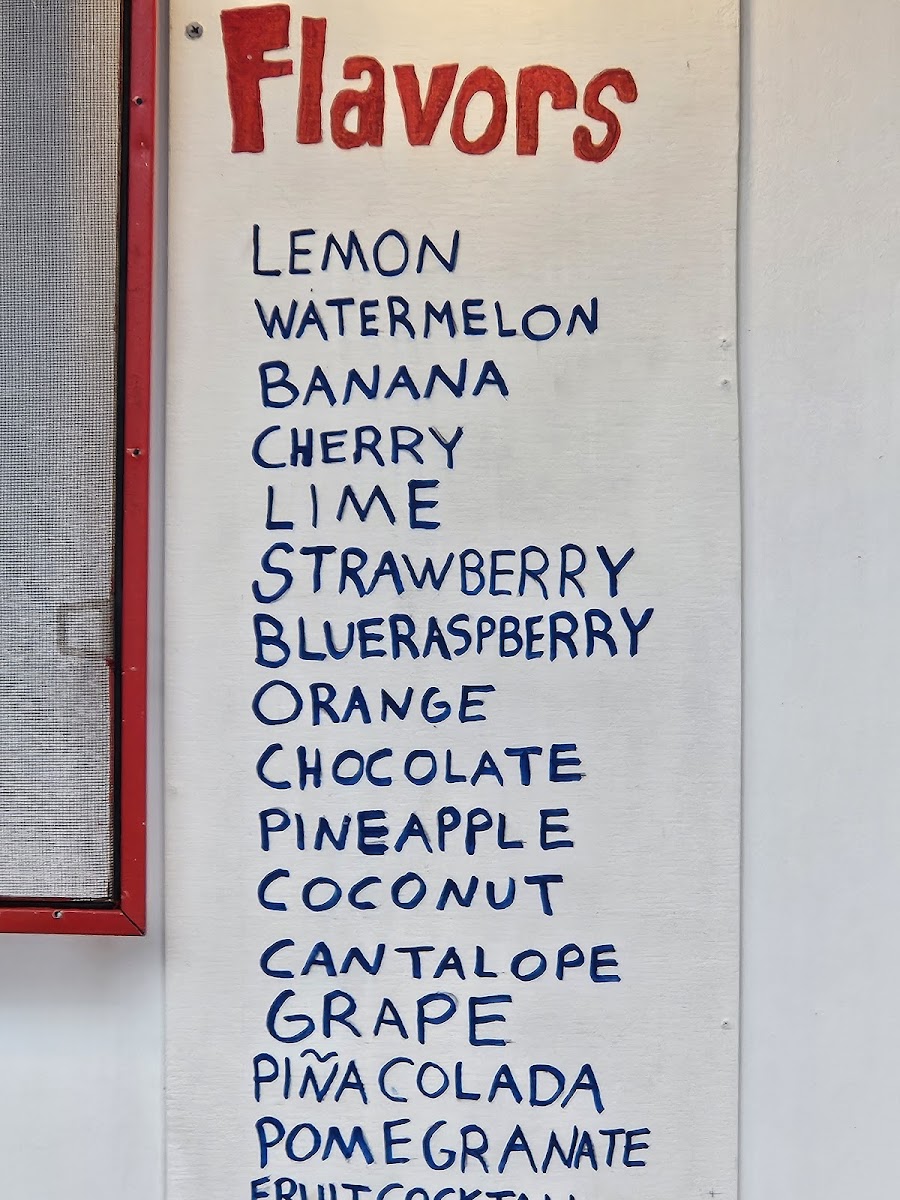 Flavors
LEMON
WATERMELON
BANANA
CHERRY
LIME
STRAWBERRY
BLUERASPBERRY
ORANGE
CHOCOLATE
PINEAPPLE
COCONUT
CANTALOPE
GRAPE
PIÑA COLADA
POMEGRANATE
FRUIT COCKTAIL